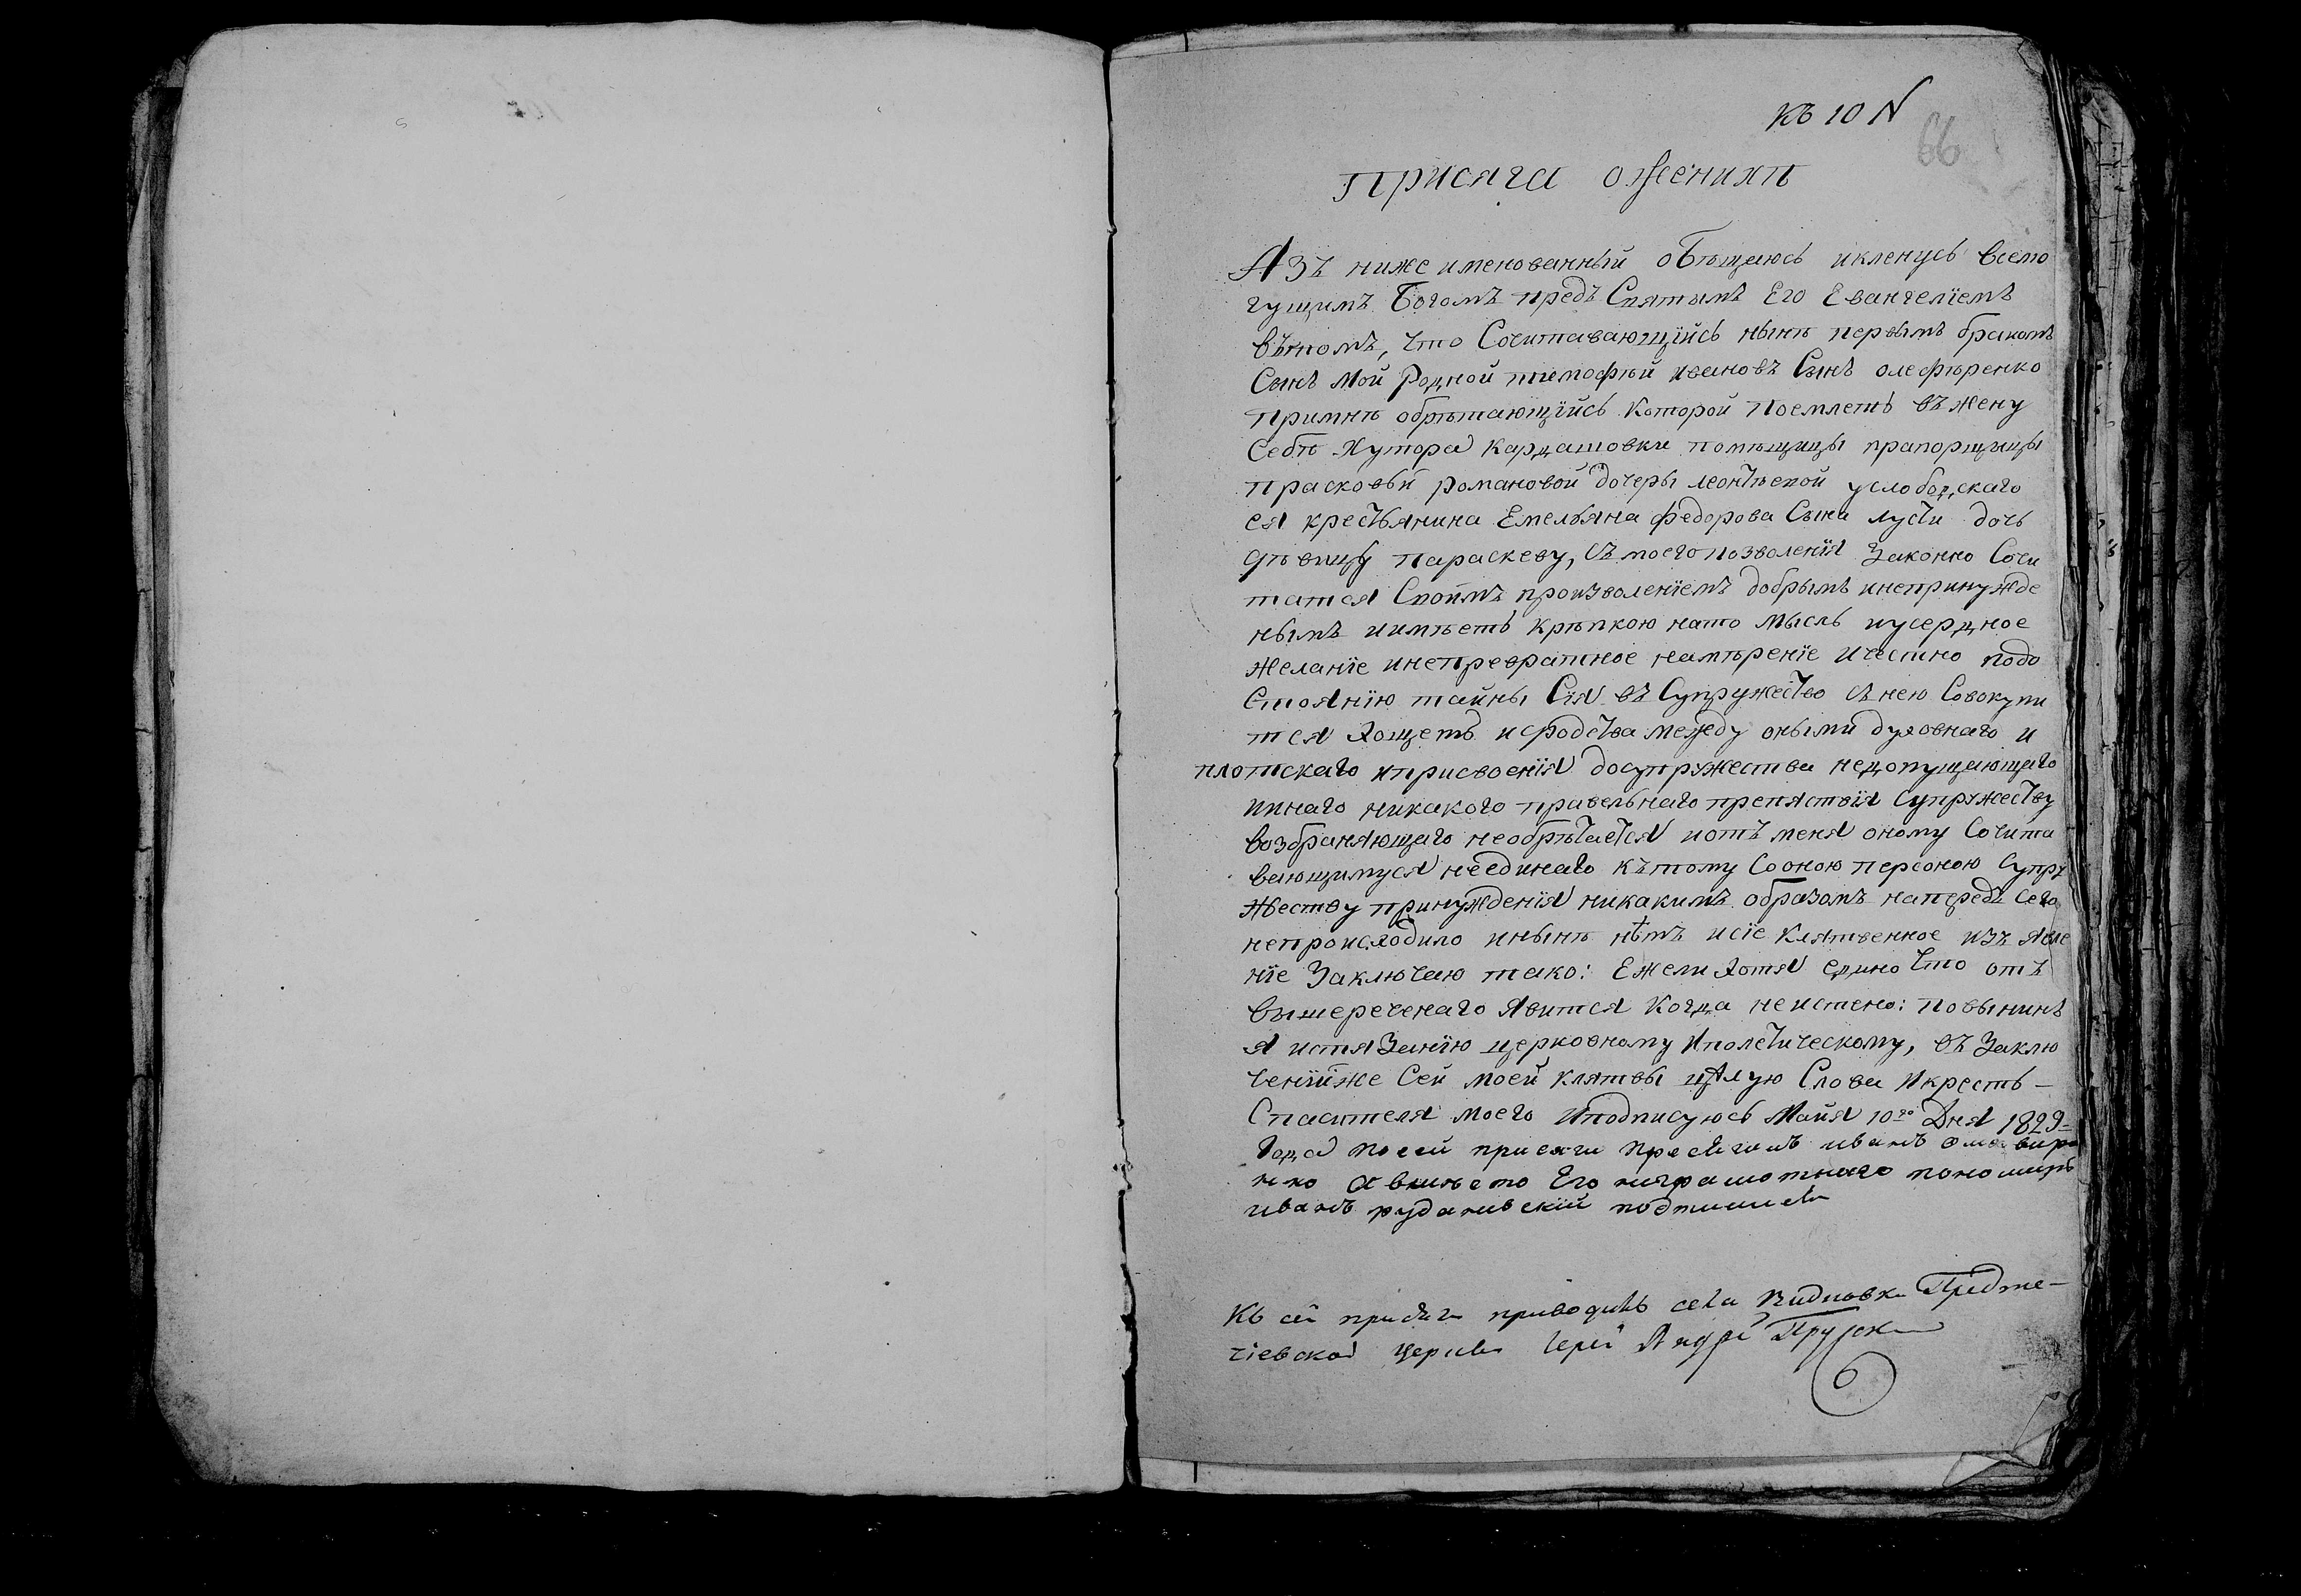 къ 10 N
66
присяга о женихѣ
Азъ ниже именованный обѣщаюсь икленусь всемо
гущимъ Богомъ предъ Святымъ Его Евангелїемъ
вѣтомъ, что Сочитавающїйсь нынѣ первымъ бракомъ
Сынъ мой Родной тимофѣй ивановъ Сынъ олефѣренко
примнѣ обрѣтающїйсь которой поемлетъ въ жену
Себѣ Хутора кардашовки помѣщицы прапорщицы
прасковьи романовой дочеры леонтьевой услободскаго
ея крестьянина Емельяна федорова Сына лусти дочь
дѣвицу параскеву, съ моего позволенїя Законно Сочи
татся Своимъ произволенїемъ добрымъ инепринужде
нымъ иимѣетъ крѣпкою нато мысль иусердное
желанїе инепревратное намѣренїе ичестно подо
стоянїю тайны Сїя въ Супружество Снею Совокупи
тся хощетъ исродства между оными духовнаго и
плотскаго иприсвоенїя досупружества недопущающаго
иинаго никакого правельнаго препятствїя Супружеству
возбраняющаго необрѣтается иотъ меня оному Сочита
вающимуся неединаго кътому Соoною персоною Супру
жеству принужденїя никакимъ образомъ напередъ Сего
непроисходило инынѣ нѣтъ исїе клятвенное изъ явле
нїе Заключаю тако: Ежели хотя едино что отъ
вышереченаго явится когда неистено: повыненъ
я истязанїю церковному иполетическому, въ Заклю
ченїиже Сей моей клятвы цѣлую Слова икрестъ –
Спасителя моего иподписуюсь Майя 10го Дня 1829–
года посей присяги присягалъ иванъ
нко авмѣсто Его неграмотнаго пономарь
иванъ рудановскїй подписался
Къ сей присяги приводилъ села Предте–
чіевской церкви Іерей Андрей